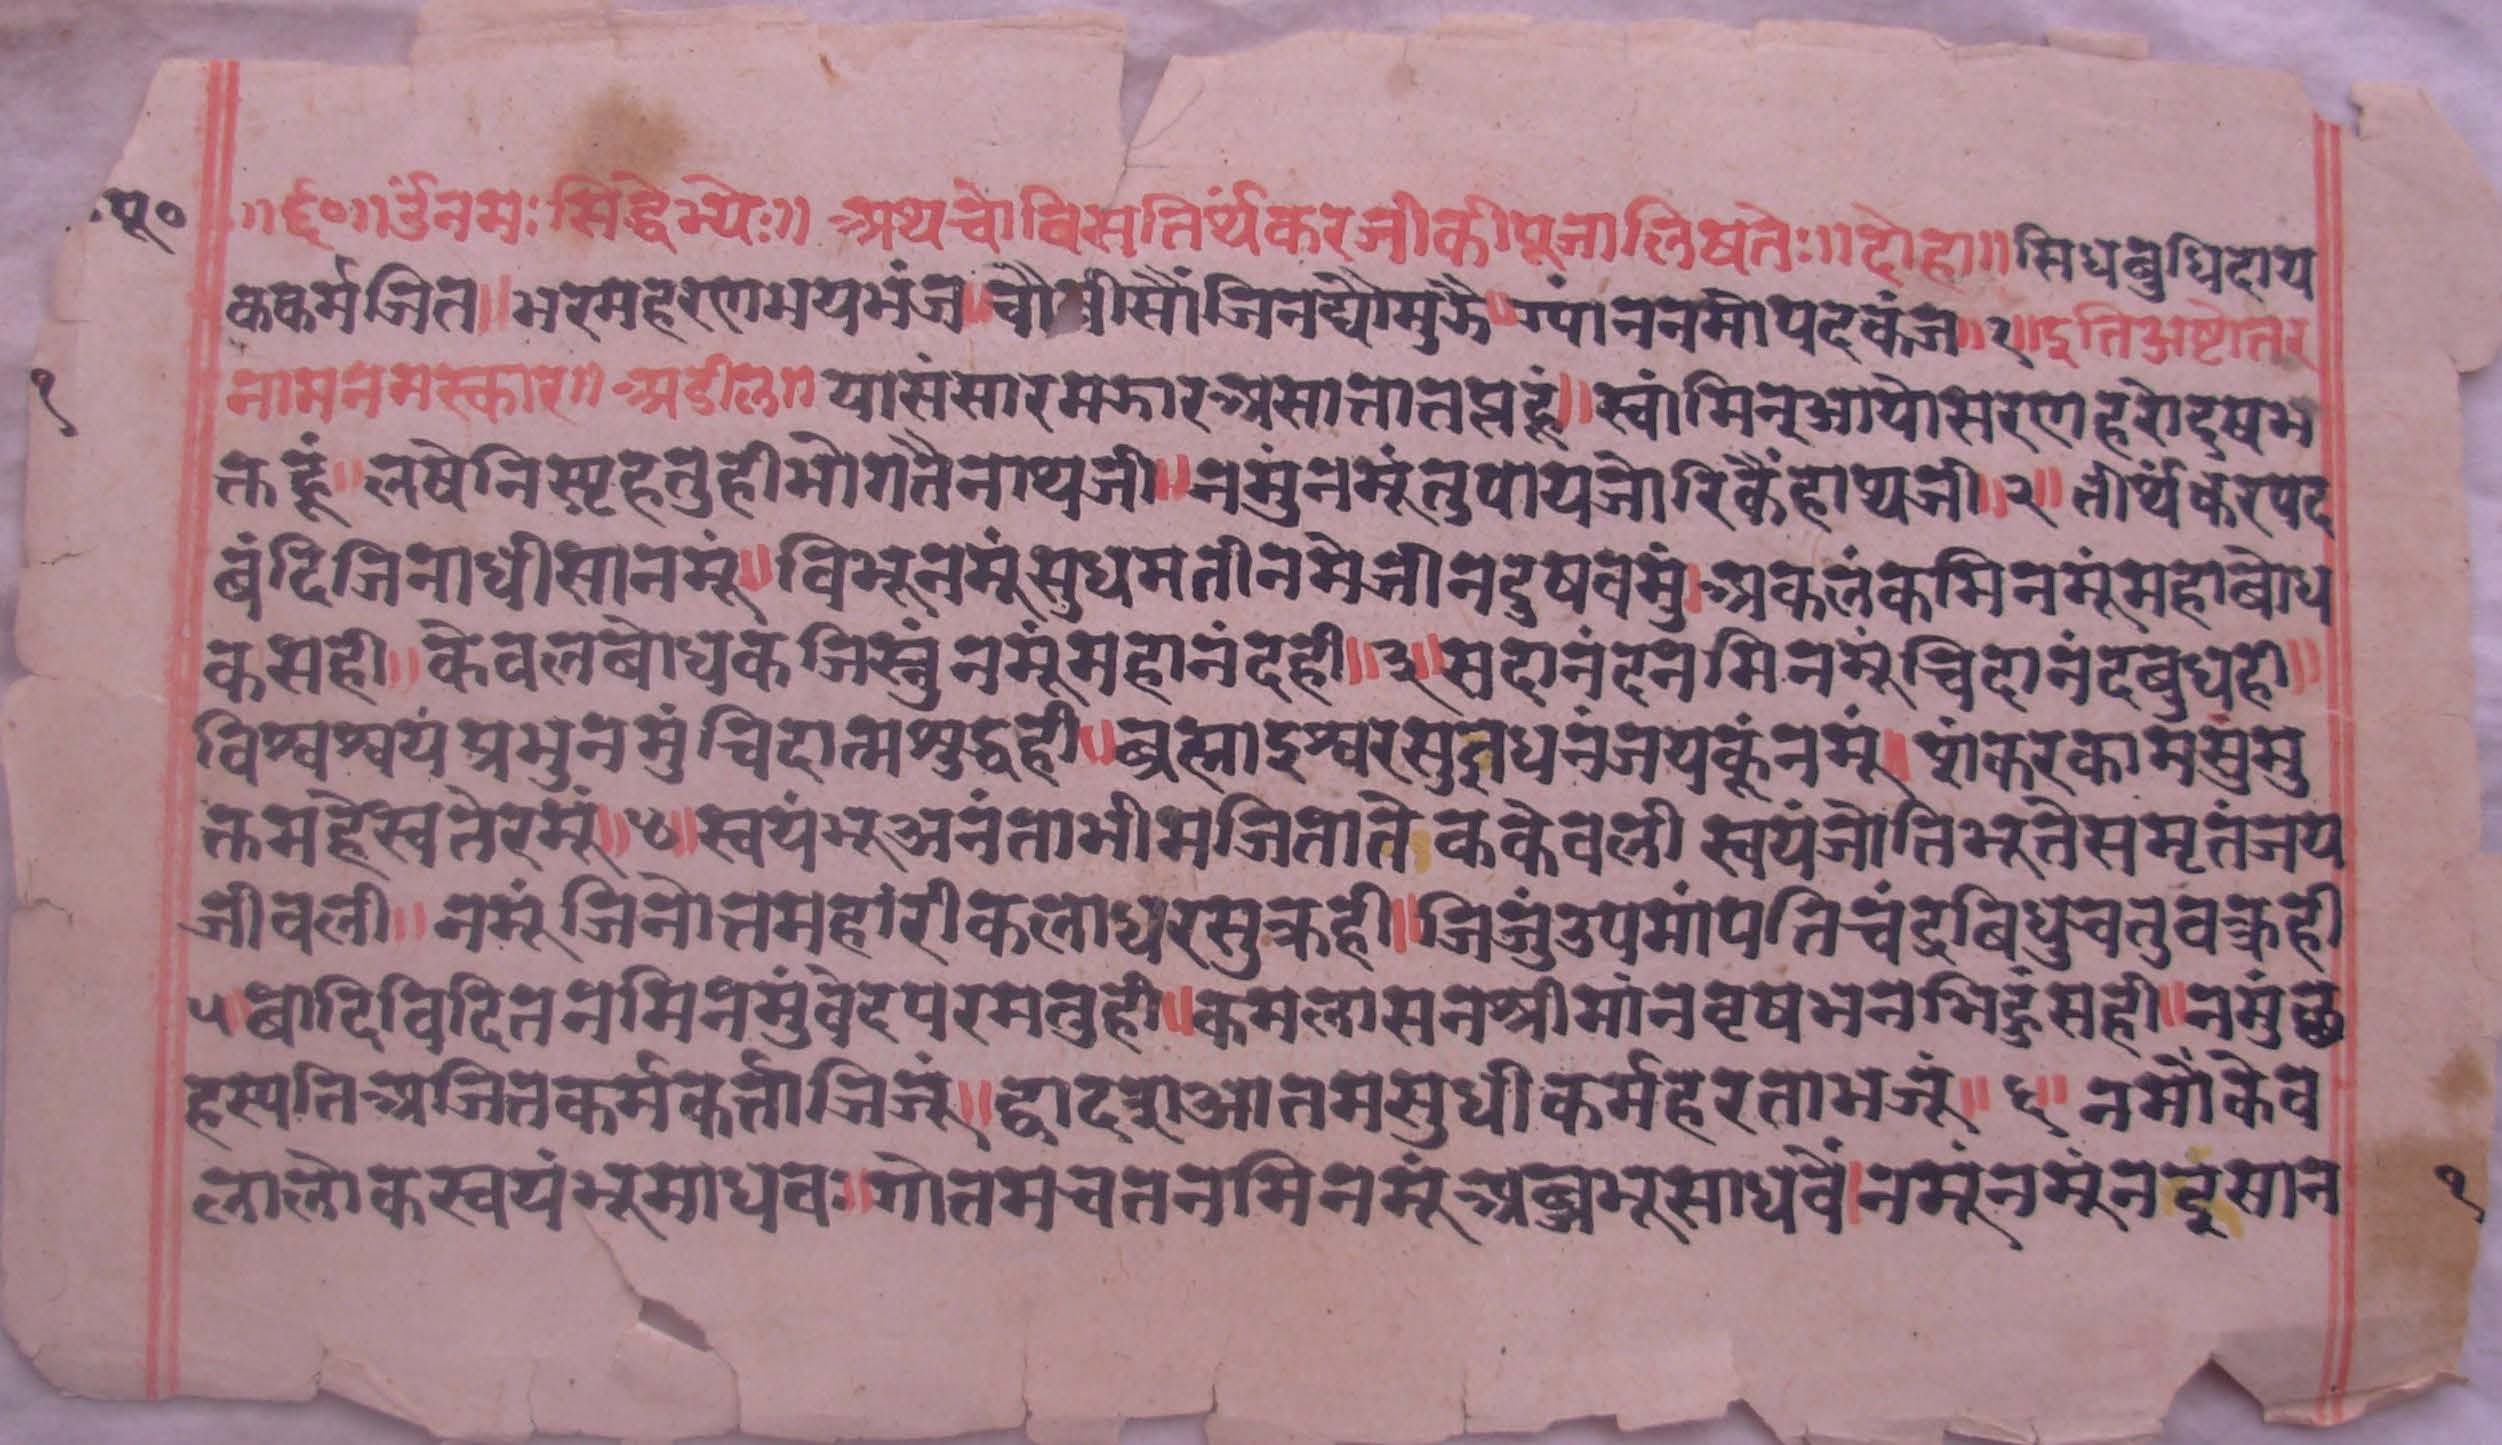 पू०
॥ र्द्द०॥ र्उनमः सिद्धेभ्येः॥ अथ चोविसतिर्थंकरजीकीपूजालिषतेः॥ दोहा॥ सिधबुधिदाय
ककर्मजित॥ भरमहरणभयभंज॥ चौवीसौंजिनद्यौमुझै॥ ग्यांननमोपदकंज॥ १॥ इतिअष्टोतर
१
नामनमस्कार॥ अडील॥ यासंसारमझारअसात्तातप्तहूं॥ स्वांमिन्आयोसरणहरोदुषभ
क्तहूं॥ लषेनिस्पृहतुहीभोगतैनाथजी॥ नमुंनमूंतुपायजोरिकैंहाथजी॥ २॥ तीर्थंकरपद
बंदिजिनाधीसानमूं॥ विभूनमूंसुधमतीनमेजीनदुषवमुं॥ अकलंकमिनमूंमहाबोध
कसही॥ केवलबोधकंजिस्नुंनमूंमहानंदही॥ ३॥ सदानंदनमिनमूंचिदानंदबुधही॥
विश्वश्वयंप्रभुनमुंचिदात्मशुद्धही॥ ब्रह्माइश्वरसुतधनंजयकूंनमूं॥ शंकरकामसुंमु
क्तमहैस्वतेरमूं॥ ४॥ स्वयंभूअनंताभीमजितातेककेवली स्वयंजोतिभूतेसमृतंजय
जीवली॥ नमूंजिनोत्तमहांरीकलाधरसुक्रही॥ जिजुंउपमांपतिचंद्रबिधुचतुवक्रही
५॥ बादिविदितनमिनमुंवेदपरमतुही॥ कमलासनश्रीमांनवृषभनमिहुंसही॥ नमुंछ
हस्पतिअजितकर्मकर्त्ताजिजूं॥ द्वादशआतमसुधीकर्महरताभजूं॥ ६॥ नमौंकेव
लालोकस्वयंभूमाधवः॥ गोतमचतनमिनमूं अब्जभूसाधवैं॥ नमूंनमूंनदूसान
१